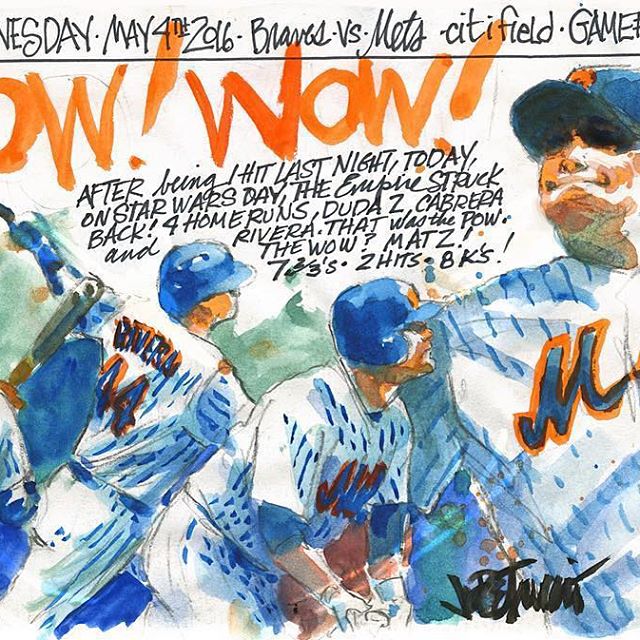 NESDAY · MAY 4TH 2016 · Braves · vs · Mets · citifield · GAME
OW! WOW!
AFTER being 1 HIT LAST NIGHT, TODAY,
ON STAR WARS DAY, THE Empire STRUCK
BACK! 4 HOMERUNS, DUDA 2, CABRERA
and RIVERA. THAT was the POW.
THE WOW? MATZ!
7 2/3's · 2 HITS · 8 K's!
M